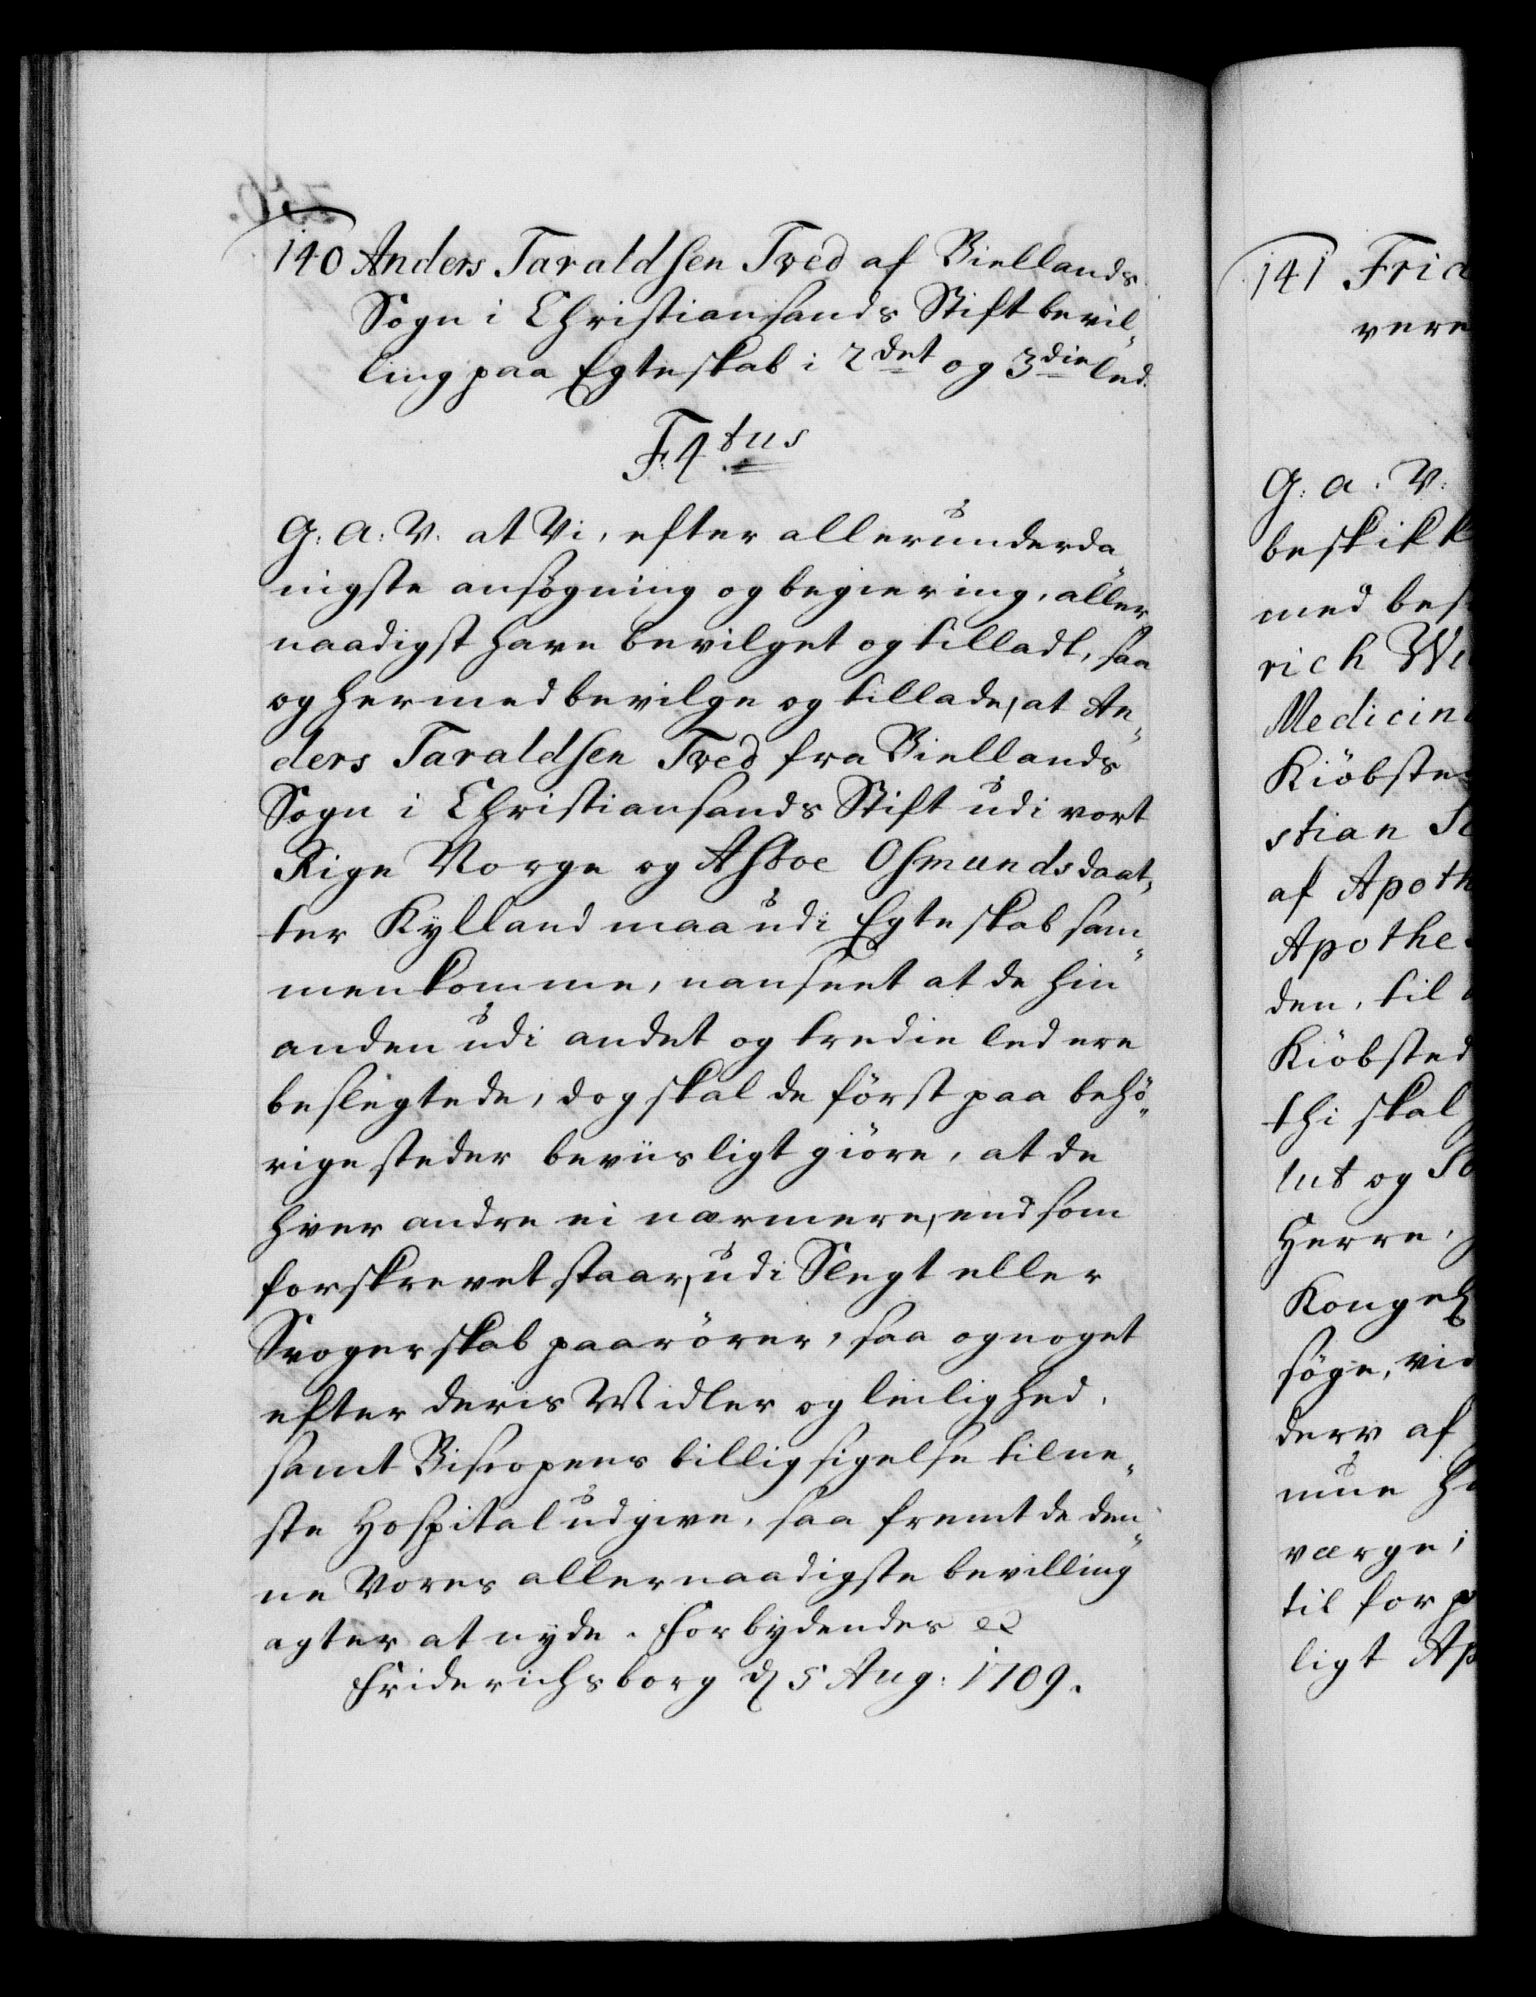 140 Anders Taraldsen Tved af Biellands
Sogn i Christiansands Stift bevil„
ling paa Egteskab i 2det og 3die led.
F. 4tus
G: A: V: at Vi, efter allerunderda„
nigste ansøgning og begiering, aller„
naadigst have bevilget og tilladt, saa
og hermed bevilge og tillade, at An„
ders Taraldsen Tved fra Biellands
Sogn i Christiansands Stift udi vort
Rige Norge og Osmundsdaat„
ter Kylland maa udi Egteskab sam„
menkomme, uanseet at de hin„
anden udi andet og tredie led ere
beslegtede, dog skal de først paa behö„
rige steder beviisligt giöre, at de
hver andre ei nærmere, end som
forskrevet staar, udi Slegt eller
Svogerskab paarörer, saa og noget
efter deris Midler og leilighed,
samt Biscopens billigsigelse til ne„
ste Hospital udgive, saa fremt de den„
ne Vores allernaadigste bevilling
agter at nyde. Forbydendes etc
Friderichsborg d 5 Aug: 1709.
141 Frid
G: a: V:
beskikk
med bes
rich
Medicin
Kiöbste
stian
af Apoth
Apothe
den, til
Kiöbsted
thi skal
lut og
Herre,
Kongel
söge,
derv af
mue
værge;
til for
ligt Ap